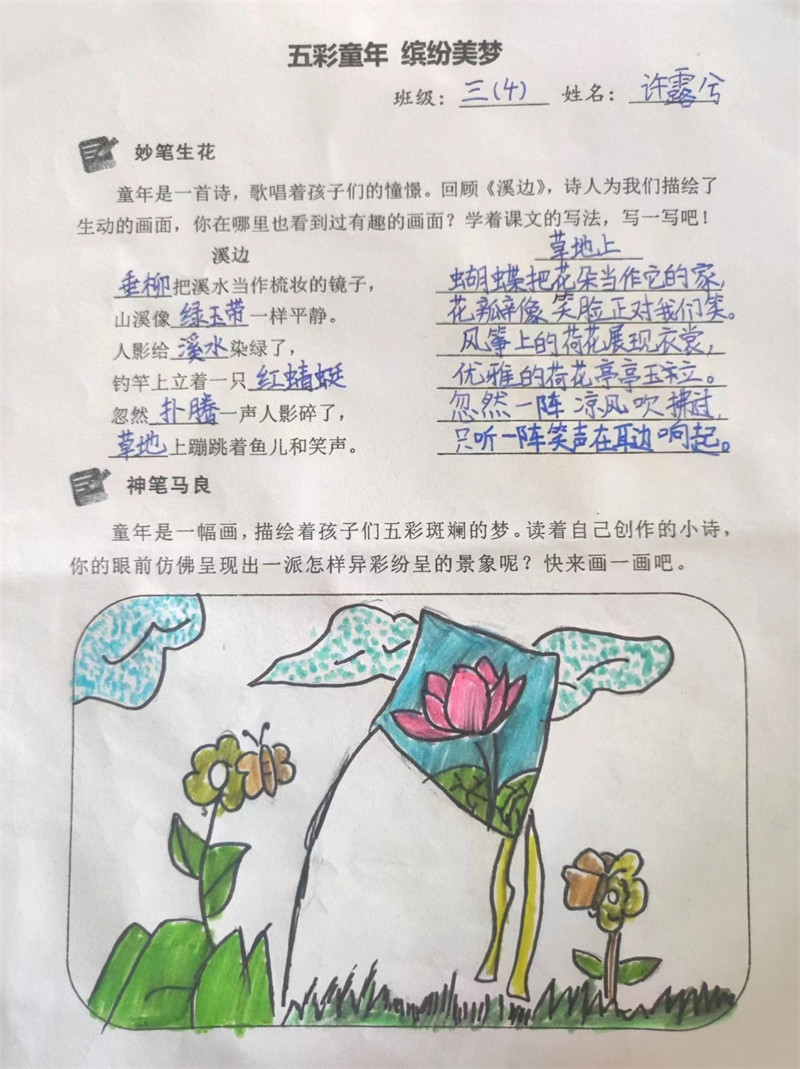 五彩童年 缤纷美梦
班级：三(4) 姓名：许露兮
妙笔生花
童年是一首诗，歌唱着孩子们的憧憬。回顾《溪边》，诗人为我们描绘了
生动的画面，你在哪里也看到过有趣的画面？学着课文的写法，写一写吧！
溪边
垂柳把溪水当作梳妆的镜子，
山溪像绿玉带一样平静。
人影给溪水染绿了，
钓竿上立着一只红蜻蜓
忽然扑腾一声人影碎了，
草地上蹦跳着鱼儿和笑声。
草地上
蝴蝶把花朵当作它的家，
花瓣像笑脸正对我们笑。
风筝上的荷花展现衣裳，
优雅的荷花亭亭玉立。
忽然一阵凉风吹拂过，
只听一阵笑声在耳边响起。
神笔马良
童年是一幅画，描绘着孩子们五彩斑斓的梦。读着自己创作的小诗，
你的眼前仿佛呈现出一派怎样异彩纷呈的景象呢？快来画一画吧。